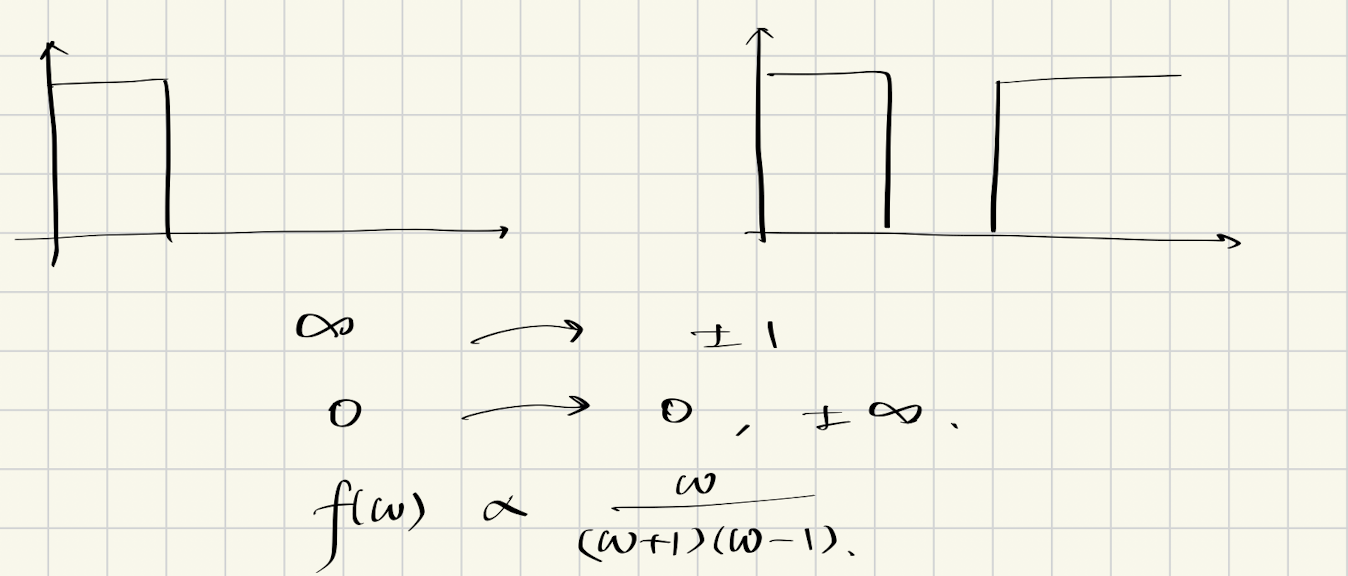 ∞ → ± 1
0 → 0 , ± ∞ .
f(ω) ∝ ω / (ω+1)(ω-1).